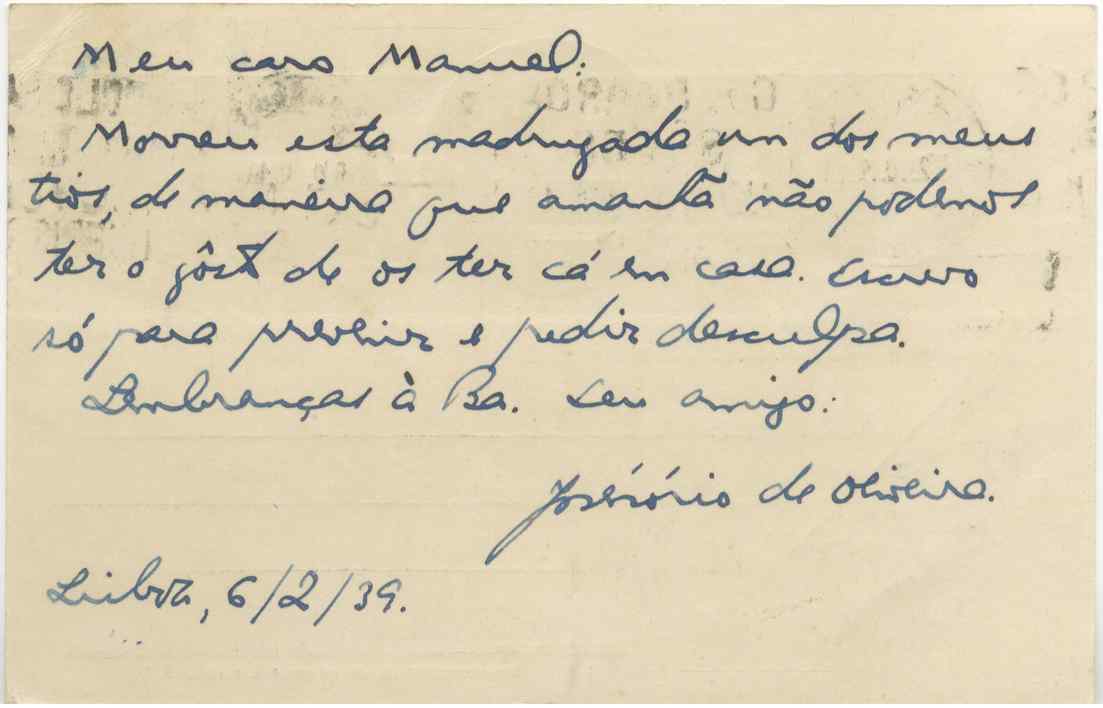 Meu caro Manuel:
Morreu esta madrugada um dos meus
tios, de maneira que amanhã não podemos
ter o gôsto de os ter cá em casa. Escrevo
só para prevenir e pedir desculpa.
Lembranças à Ba. Seu amigo:
José Osório de Oliveira.
Lisboa, 6/2/39.